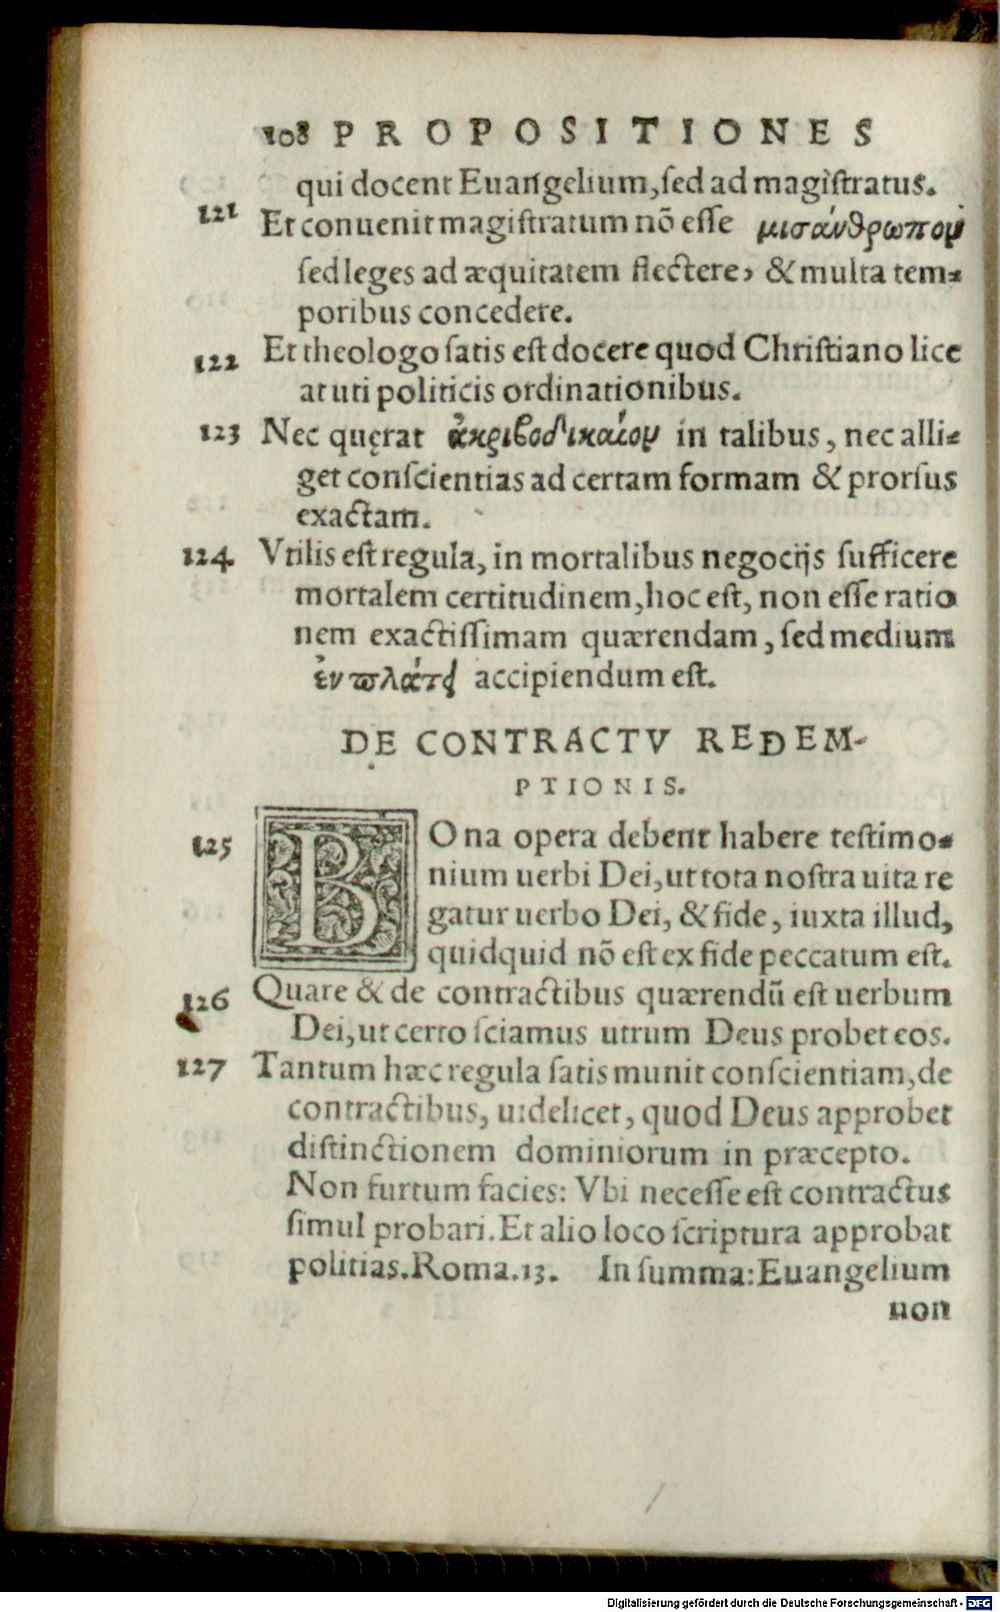 108 PROPOSITIONES
qui docent Euangelium, sed ad magistratus.
121 Et conuenit magistratum nõ esse μισάνθρωπον
sed leges ad æquitatem flectere, & multa tem-
poribus concedere.
122 Et theologo satis est docere quod Christiano lice
at uti politicis ordinationibus.
123 Nec quęrat ἀκριβοδίκαιον in talibus, nec alli-
get conscientias ad certam formam & prorsus
exactam.
124 Vtilis est regula, in mortalibus negocijs sufficere
mortalem certitudinem, hoc est, non esse ratio
nem exactissimam quærendam, sed medium
ἐν πλάτει accipiendum est.
DE CONTRACTV REDEM-
PTIONIS.
125 BOna opera debent habere testimo-
nium uerbi Dei, ut tota nostra uita re
gatur uerbo Dei, & fide, iuxta illud,
quidquid nõ est ex fide peccatum est.
126 Quare & de contractibus quærendũ est uerbum
Dei, ut certo sciamus utrum Deus probet eos.
127 Tantum hæc regula satis munit conscientiam, de
contractibus, uidelicet, quod Deus approbet
distinctionem dominiorum in præcepto.
Non furtum facies: Vbi necesse est contractus
simul probari. Et alio loco scriptura approbat
politias. Roma. 13. In summa: Euangelium
non
Digitalisierung gefördert durch die Deutsche Forschungsgemeinschaft - DFG